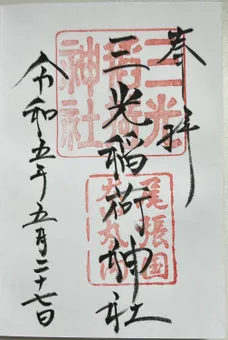 奉拝
三光稲荷神社
令和五年五月二十七日
三光
稲荷
神社
尾張国
犬山城